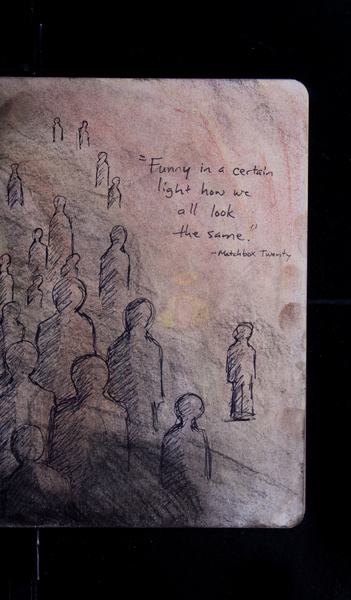 "Funny in a certain
light how we
all look
the same."
-Matchbox Twenty